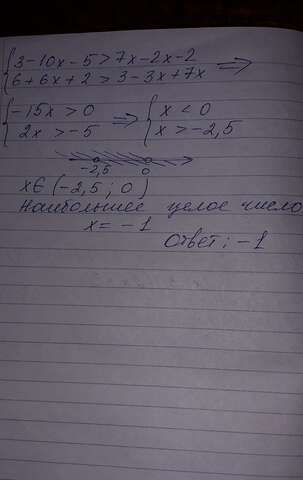 {3-10x-5>7x-2x-2
{6+6x+2>3-3x+7x ⟹
{-15x>0 ⟹ {x<0
{2x>-5 {x>-2,5
-2,5 0
x∈(-2,5; 0)
Наибольшее целое число
x=-1
Ответ: -1